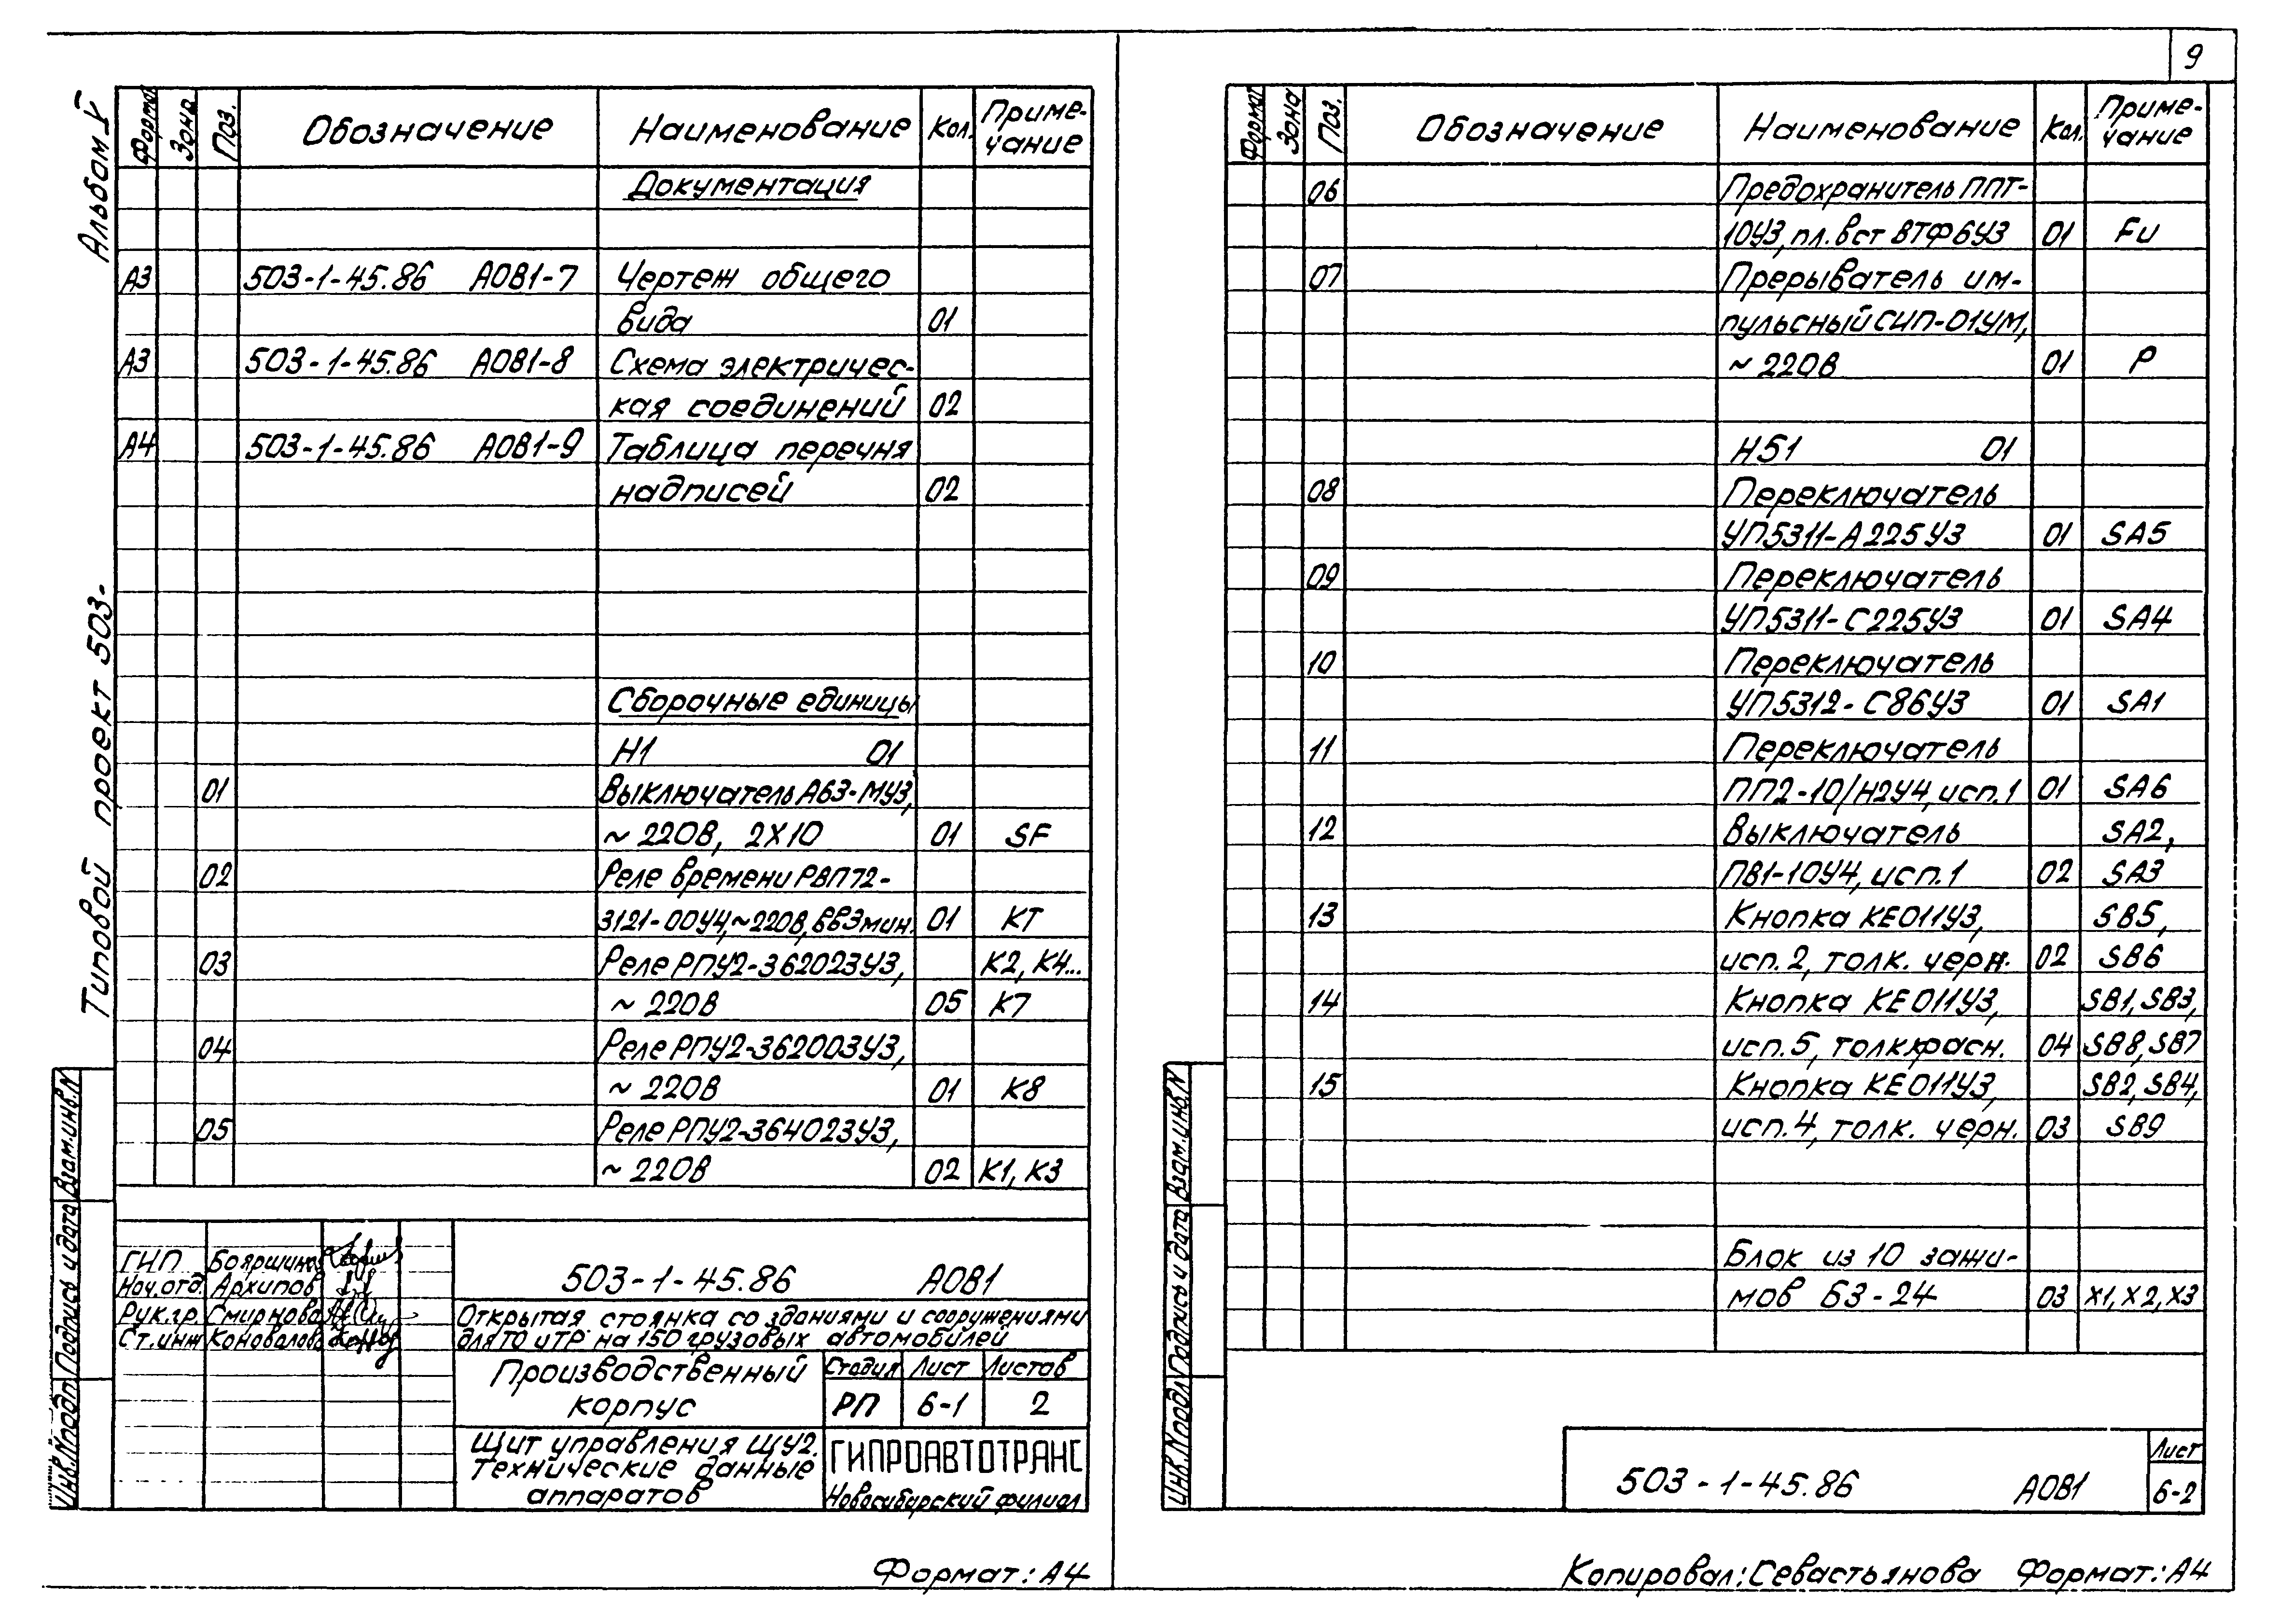 9
Альбом V
Типовой проект 503-
Формат Зона Поз. Обозначение Наименование Кол. Приме-
чание
Документация
А3 503-1-45.86 АОВ1-7 Чертеж общего
вида 01
А3 503-1-45.86 АОВ1-8 Схема электричес-
кая соединений 02
А4 503-1-45.86 АОВ1-9 Таблица перечня
надписей 02
Сборочные единицы
Н1 01
01 Выключатель А63-МУ3,
~ 220В, 2Х10 01 SF
02 Реле времени РВП72-
3121-00У4,~220В, ВВ3мин. 01 КТ
03 Реле РПУ2-362023У3, К2, К4...
~ 220В 05 К7
04 Реле РПУ2-362003У3,
~ 220В 01 К8
05 Реле РПУ2-364023У3,
~ 220В 02 К1, К3
ГИП Бояршинов
Нач.отд. Архипов
Рук.гр. Смирнова
Ст.инж Коновалова
503-1-45.86 АОВ1
Открытая стоянка со зданиями и сооружениями
для ТО и ТР на 150 грузовых автомобилей
Производственный
корпус
Стадия Лист Листов
РП 6-1 2
Щит управления ЩУ2.
Технические данные
аппаратов
ГИПРОАВТОТРАНС
Новосибирский филиал
Инв.N подл Подпись и дата Взам.инв.N
Формат: А4
Формат Зона Поз. Обозначение Наименование Кол. Приме-
чание
06 Предохранитель ППТ-
10У3, пл. вст ВТФ6У3 01 Fu
07 Прерыватель им-
пульсный СИП-01УМ,
~ 220В 01 Р
Н51 01
08 Переключатель
УП5311-А225У3 01 SA5
09 Переключатель
УП5311-С225У3 01 SA4
10 Переключатель
УП5312-С86У3 01 SA1
11 Переключатель
ПП2-10/Н2У4, исп.1 01 SA6
12 Выключатель SA2,
ПВ1-10У4, исп.1 02 SA3
13 Кнопка КЕ011У3, SB5,
исп. 2, толк. черн. 02 SB6
14 Кнопка КЕ011У3, SB1, SB3,
исп. 5, толк.красн. 04 SB8, SB7
15 Кнопка КЕ011У3, SB2, SB4,
исп. 4, толк. черн. 03 SB9
Блок из 10 зажи-
мов БЗ-24 03 Х1, Х2, Х3
Инв.N подл Подпись и дата Взам.инв.N
503-1-45.86 АОВ1
Лист
6-2
Копировал: Севастьянова Формат: А4